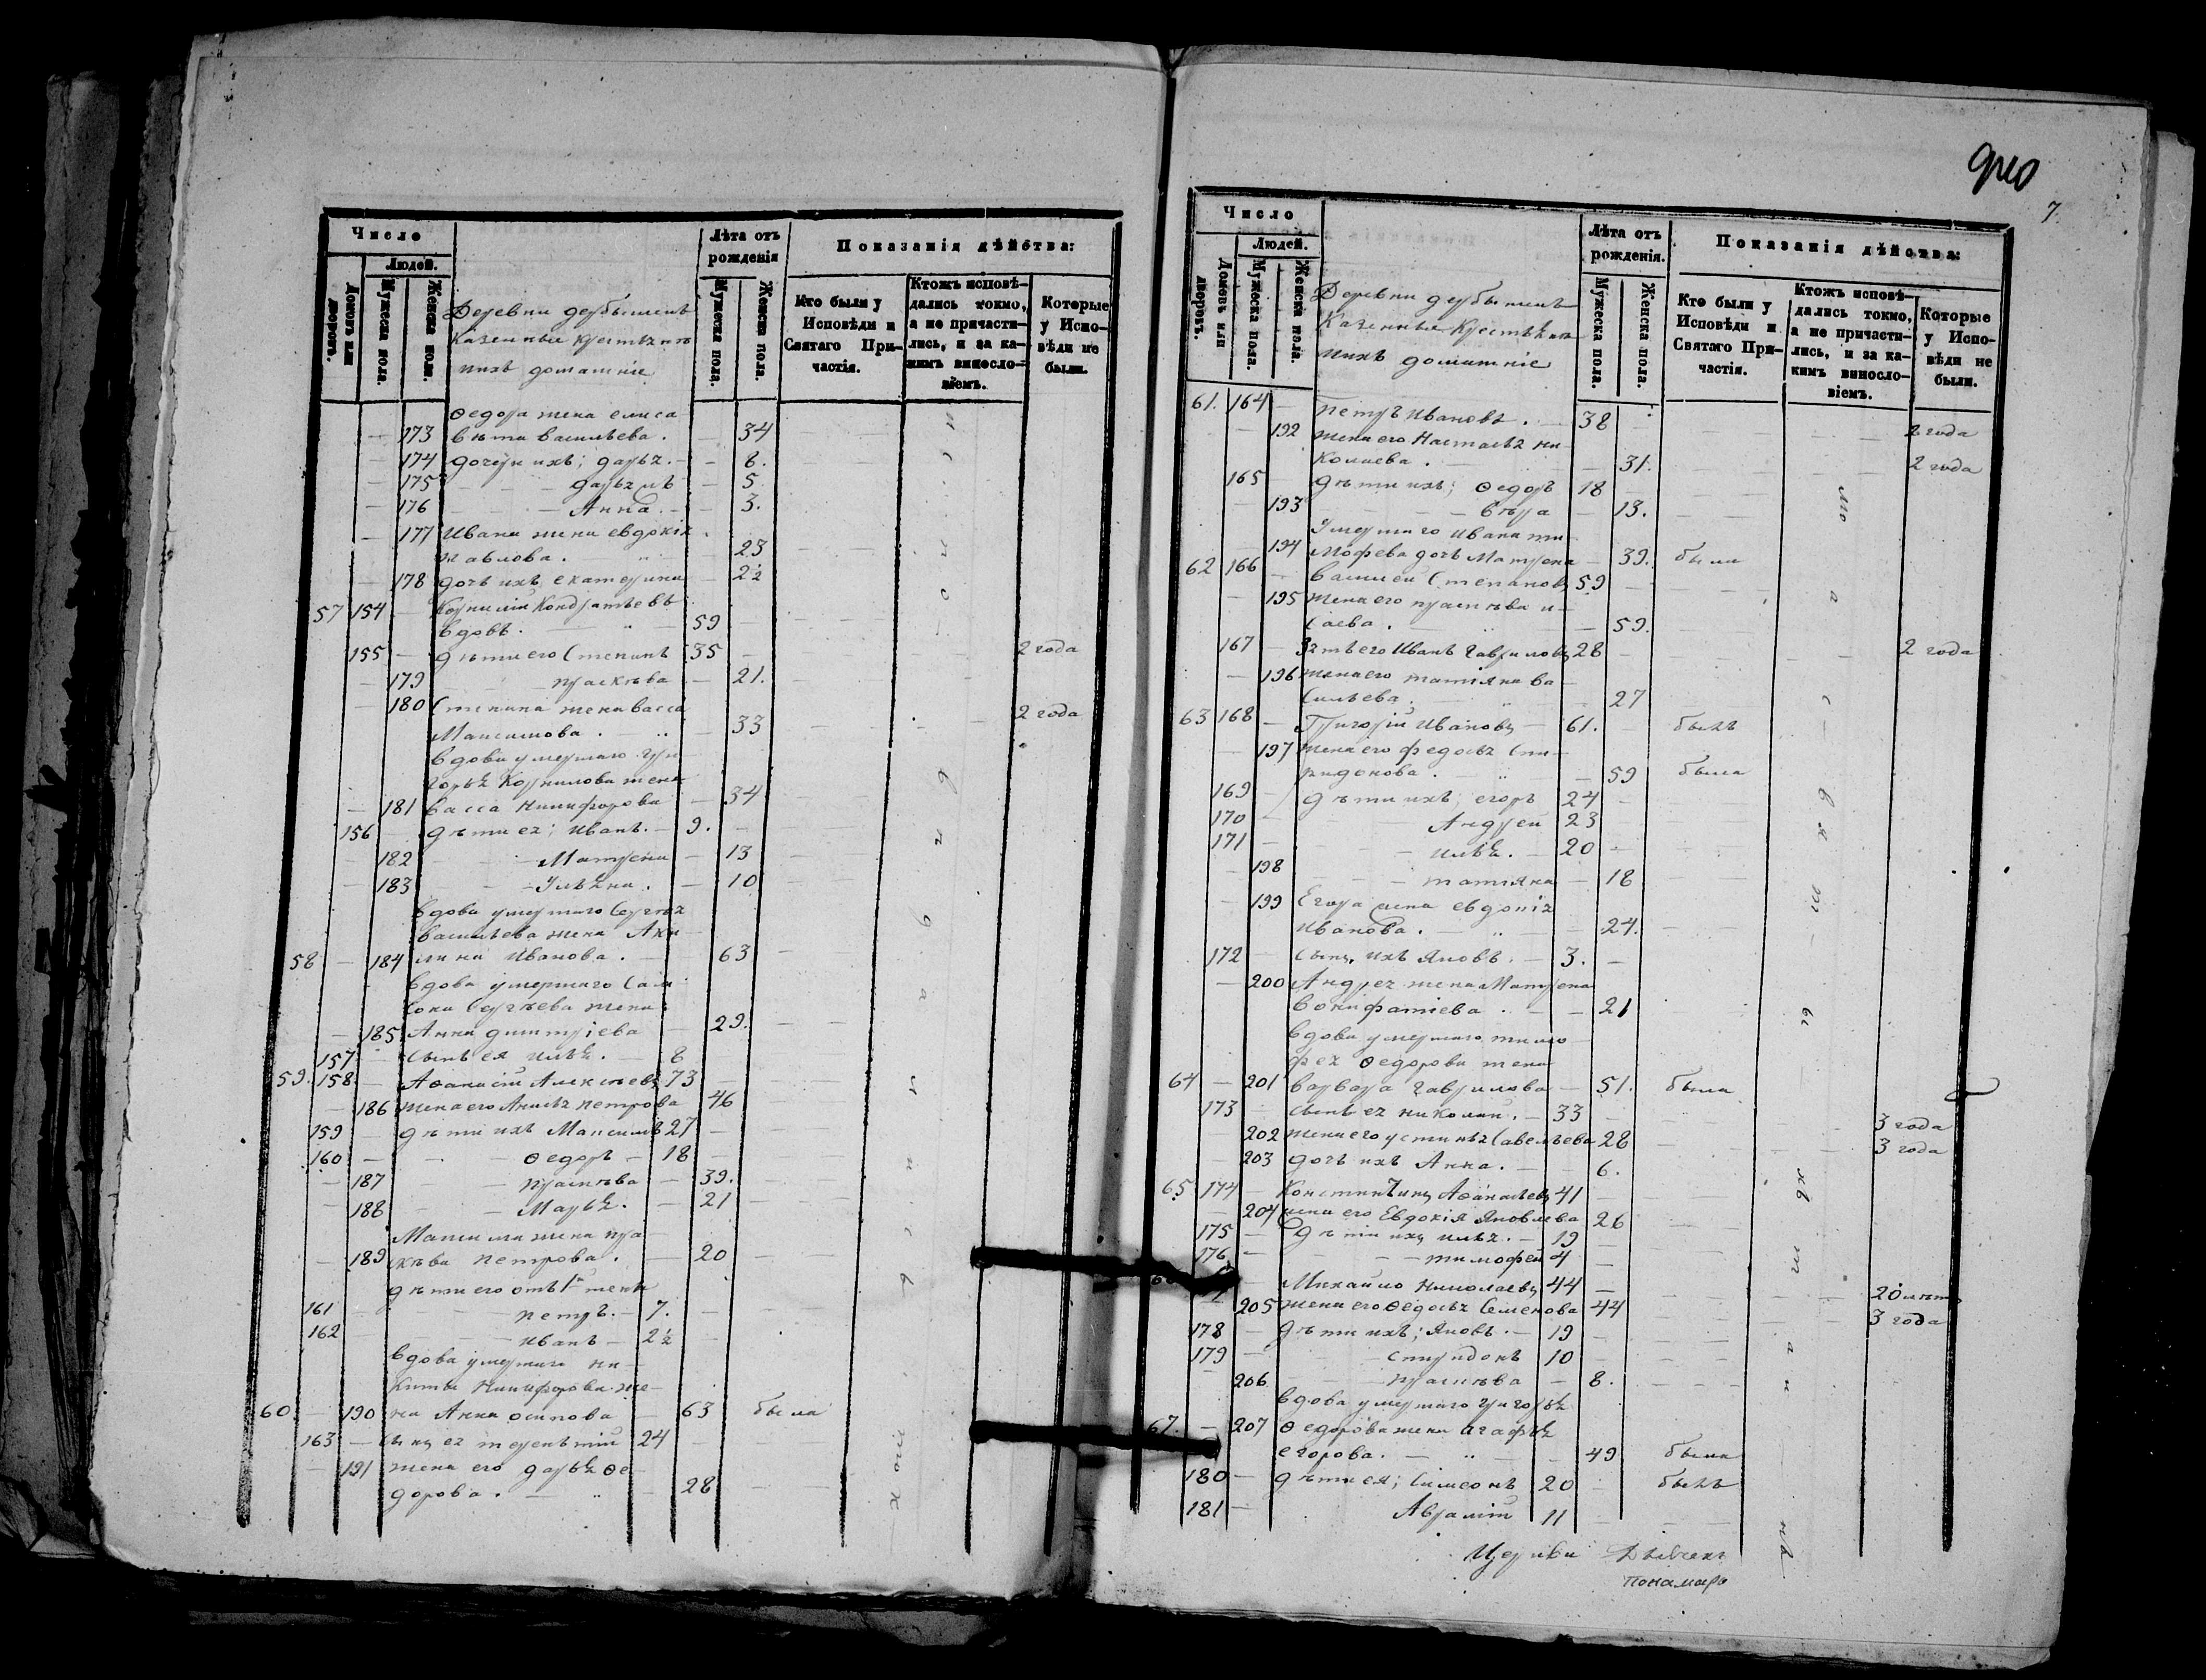 Число
Людей.
Домовъ или дворовъ.
Мужеска пола.
Женска пола.
Деревни дербышевъ
Казенные крестьяне
ихъ домашніе
Лѣта отъ рожденія
Мужеска пола.
Женска пола.
Показанія дѣйства:
Кто были у Исповѣди и Святаго Причастія.
Ктожъ исповѣдались токмо, а не причастились, и за какимъ винословіемъ.
Которые у Исповѣди не были.
Ѳедора жена елиса
173 вѣта васильева. 34
174 дочери ихъ; дарья. 8.
175 5.
176 Анна. 3.
177 Ивана жена евдокія
павлова. 23
178 дочь ихъ екатерина 2½
57 154 Корнилій Кондратьевъ
вдовъ. 59
155 дѣти его Степанъ 35 2 года
179 прасковья 21.
180 Степана жена васса
Максимова. 33 2 года
вдова умершаго гри
горья Корнилова жена
181 васса Никифорова 34
156 дѣти ея; иванъ. 9.
182 Матрена 13
183 Ульяна. 10
вдова умершаго Сергѣя
васильева жена Аку
58 184 лина Иванова. 63
вдова умершаго Сам
сона Сергѣева жена
185 Анна димитріева 29.
157 сынъ ея илья. 8
59. 158 Аѳанасій Алексѣевъ 73
186 жена его Анисья петрова 46
159 дѣти ихъ Максимъ 27
160 Ѳедоръ 18
187 39.
188 Марья. 21
Максима жена пра
189 сковья Петрова. 20
дѣти его отъ 1й жены
161 петръ. 7.
162 иванъ 2½
вдова умершаго ни
киты Никифорова же
60 190 на Анна осипова 63 была
163 сынъ ея терентій 24
191 жена его дарья Ѳе
дорова. 28
7.
Число
Людей.
Домовъ или дворовъ.
Мужеска пола.
Женска пола.
Деревни дербышевъ
Казенные Крестьяне
ихъ домашніе
Лѣта отъ рожденія.
Мужеска пола.
Женска пола.
Показанія дѣйства:
Кто были у Исповѣди и Святаго Причастія.
Ктожъ исповѣдались токмо, а не причастились, и за какимъ винословіемъ.
Которые у Исповѣди не были.
61. 164 Петръ Ивановъ. 38 2 года
192 жена его Настасья ни
колаева. 31. 2 года
165 дѣти ихъ; Ѳедоръ 18
193 вѣра 13.
Умершаго ивана ти
194 мофева дочь Матрена 39. была
62 166 василій Степановъ 59
195 жена его прасковья и
саева. 59.
167 Зять его Иванъ Гавриловъ 28 2 года
196 жена его татіяна ва
сильева. 27
63 168 Григорій Ивановъ 61. былъ
197 жена его федосья спи
ридонова. 59 была
169 дѣти ихъ; егоръ 24
170 Андрей 23
171 илья. 20
198 татіяна 18
199 Егора жена евдокія
иванова. 24.
172 сынъ ихъ яковъ. 3.
200 Андрея жена Матрена
вонифатіева. 21
вдова умершаго тимо
фея Ѳедорова жена
64 201 варвара гаврилова 51. была
173 сынъ ея николай. 33 3 года
202 жена его устинья Савельева 28 3 года
203 дочь ихъ Анна. 6.
65 174 Константинъ Аѳанасьевъ 41
204 жена его Евдокія Яковлева 26
175 Дѣти ихъ илья. 19
176 тимофей 4
Михайло Николаевъ 44 20 лѣтъ
205 жена его Ѳедосья Семенова 44 3 года
178 дѣти ихъ; яковъ. 19
179 спиридонъ 10
206 прасковья 8.
вдова умершаго григорья
67. 207 Ѳедорова жена агафья
егорова. 49 была
180 дѣти ея; Симеонъ 20 былъ
181 11
Церкви
Пономарь